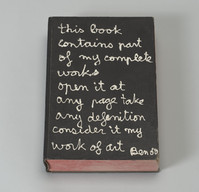 this book
contains part
of my complete
works
open it at
any page take
any definition
consider it my
work of art Ben 60